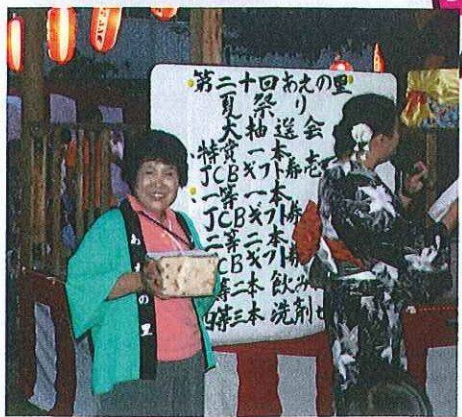 第二十回あえの里
夏祭り
大抽選会
特賞一本
JCBギフト券壱
一等一本
JCBギフト券
二等二本
CBギフト券
等二本飲み
四等三本洗剤
の里